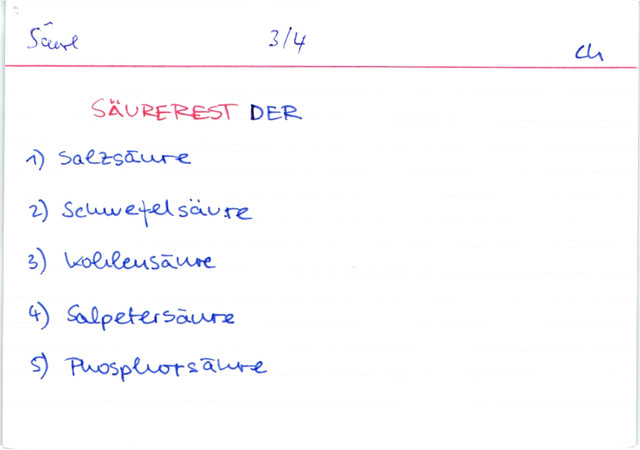 Säure 3/4 Ch
SÄUREREST DER
1) Salzsäure
2) Schwefelsäure
3) Kohlensäure
4) Salpetersäure
5) Phosphorsäure